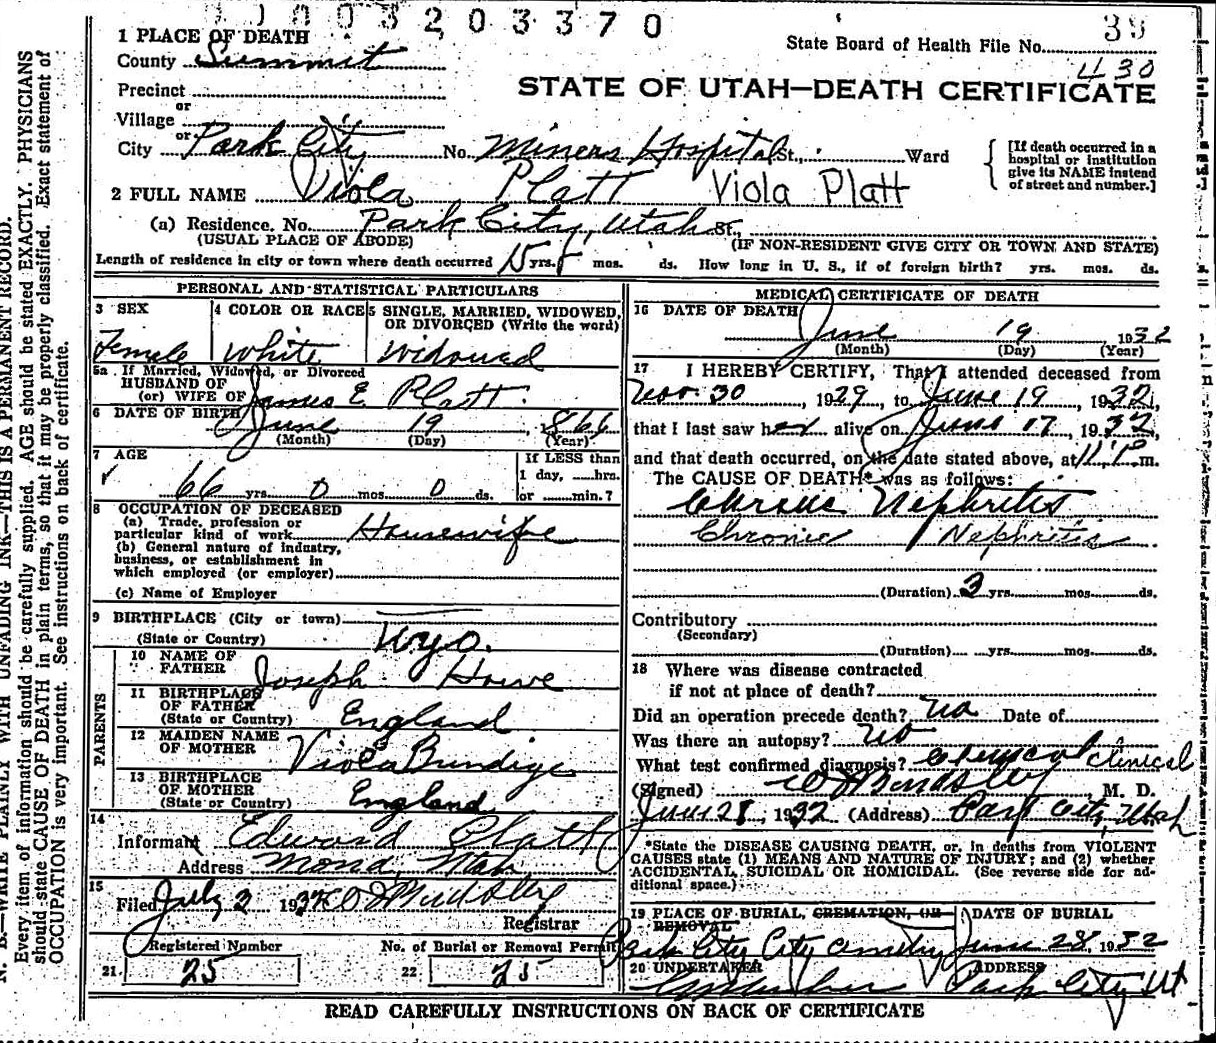 003203370
39
State Board of Health File No.
430
1 PLACE OF DEATH
County Summit
STATE OF UTAH—DEATH CERTIFICATE
Precinct
or
Village
or
City Park City No. Miners Hospital St., Ward
[If death occurred in a hospital or institution give its NAME instead of street and number.]
2 FULL NAME Viola Platt Viola Platt
(a) Residence. No. Park City, Utah St.,
(USUAL PLACE OF ABODE) (IF NON-RESIDENT GIVE CITY OR TOWN AND STATE)
Length of residence in city or town where death occurred 15 yrs. mos. ds. How long in U. S., if of foreign birth? yrs. mos. ds.
PERSONAL AND STATISTICAL PARTICULARS
3 SEX 4 COLOR OR RACE 5 SINGLE, MARRIED, WIDOWED, OR DIVORCED (Write the word)
Female White Widowed
5a If Married, Widowed, or Divorced
HUSBAND OF
(or) WIFE OF James E Platt.
6 DATE OF BIRTH June 19, 1866
(Month) (Day) (Year)
7 AGE
If LESS than
1 day, ......hrs.
66 yrs. 0 mos. 0 ds. or ......min.?
8 OCCUPATION OF DECEASED
(a) Trade, profession or
particular kind of work Housewife
(b) General nature of industry,
business, or establishment in
which employed (or employer)
(c) Name of Employer
9 BIRTHPLACE (City or town)
(State or Country) Wyo.
PARENTS
10 NAME OF
FATHER Joseph Howe
11 BIRTHPLACE
OF FATHER
(State or Country) England
12 MAIDEN NAME
OF MOTHER Viola Bundige
13 BIRTHPLACE
OF MOTHER
(State or Country) England
14
Informant Edward Platt
Address Mona, Utah
15
Filed July 2 1932
Registrar
Registered Number No. of Burial or Removal Permit
21. 25 22 25
MEDICAL CERTIFICATE OF DEATH
16 DATE OF DEATH
June 19 1932
(Month) (Day) (Year)
17 I HEREBY CERTIFY, That I attended deceased from
Nov. 30, 1929, to June 19, 1932,
that I last saw her alive on June 17, 1932,
and that death occurred, on the date stated above, at m.
The CAUSE OF DEATH* was as follows:
Chronic Nephritis
Chronic Nephritis
(Duration) 3 yrs. mos. ds.
Contributory
(Secondary)
(Duration) yrs. mos. ds.
18 Where was disease contracted
if not at place of death?
Did an operation precede death? No Date of
Was there an autopsy? No
What test confirmed diagnosis? Clinical Clinical
(Signed) M. D.
June 28, 1932 (Address) Park City, Utah
*State the DISEASE CAUSING DEATH, or, in deaths from VIOLENT
CAUSES state (1) MEANS AND NATURE OF INJURY; and (2) whether
ACCIDENTAL, SUICIDAL OR HOMICIDAL. (See reverse side for ad-
ditional space.)
19 PLACE OF BURIAL, CREMATION, OR REMOVAL DATE OF BURIAL
Park City City Cemetery June 28, 1932
20 UNDERTAKER ADDRESS
Park City Ut
READ CAREFULLY INSTRUCTIONS ON BACK OF CERTIFICATE
N. B.—WRITE PLAINLY WITH UNFADING INK—THIS IS A PERMANENT RECORD.
Every item of information should be carefully supplied. AGE should be stated EXACTLY. PHYSICIANS
should state CAUSE OF DEATH in plain terms, so that it may be properly classified. Exact statement of
OCCUPATION is very important. See instructions on back of certificate.